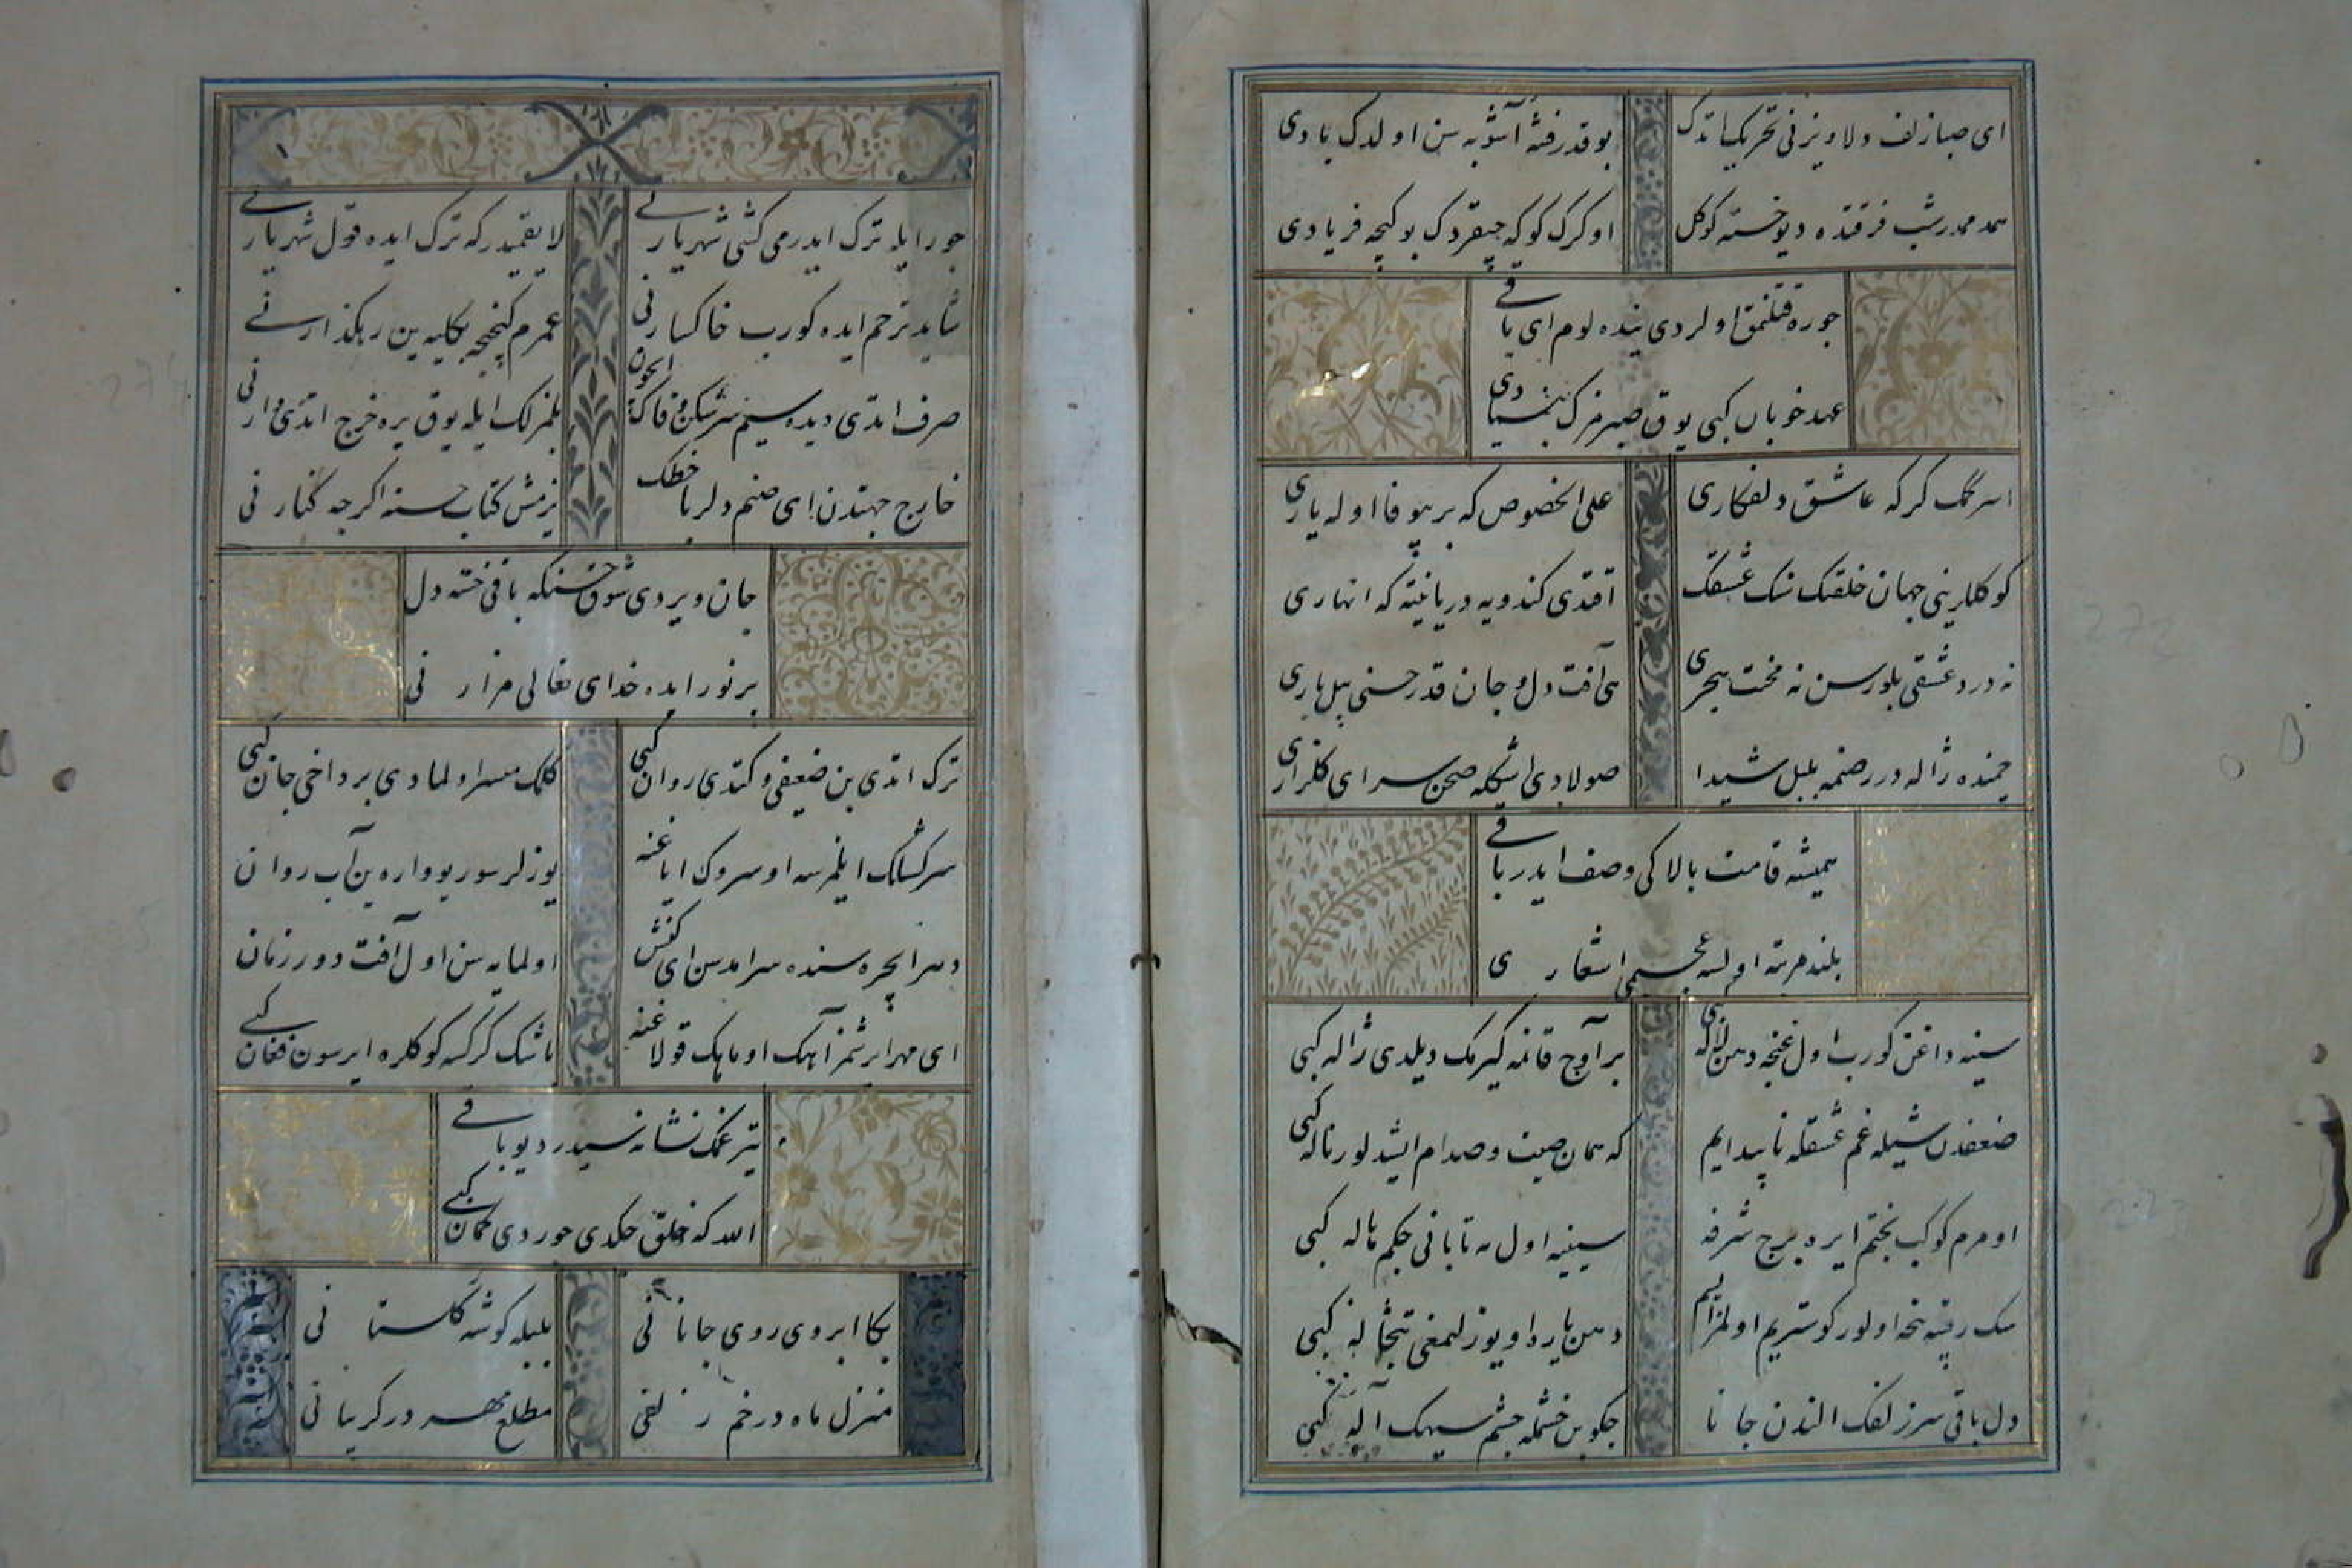 ای صبا زلف دلاویزنی تحریک ایتدک
بو قدر فتنه و آشوبه سن اولدک بادی
همدممدر شب فرقتده دیو خسته کوکل
اوکرک کوکه چیقردک بو کیجه فریادی
جوره قتلنمق اولردی بنده لوم ای باقی
عهد خوبان کبی یوق صبرمزک بنیادی
اسرگمک کرکه عاشق دلفکاری
علی الخصوص که بر بیوفا اوله یاری
کوکللرینی جهان خلقنک سنک عشقک
آقتدی کندویه دریا نیته که انهاری
نه درد عشقی بلورسن نه محنت هجری
هی آفت دل و جان قدر حسنی بیل باری
چمنده ژاله در صنمه بلبل شیدا
صولادی اشکله صحن سرای کلزاری
همیشه قامت بالاکی وصف ایدر باقی
بلند مرتبه اولسه عجب می اشعاری
سینه داغن کورب اول غنچه دهن لاله کبی
بر آوج قانمه کیرمک دیلدی ژاله کبی
ضعفدن شیله غم عشقله ناپیدایم
که همان صیت و صدام ایشیدلور ناله کبی
اومرم کوکب بختم ایره برج شرفه
سینیه اول مه تابانی چکم هاله کبی
سک رقیبه نجه اولور کوستریم اولمزایسم
دهن یارده اویوزلمغی تبخاله کبی
دل باقی سر زلفک الندن جانا
چکه بن خشمله چشم سیهک آله کبی
جور ایله ترک ایدرمی کشی شهریارنی
لایقمیدر که ترک ایده قول شهریارنی
شاید ترحم ایده کورب خاکسارنی
عمرم کچنجه بکلیه ین رهکذارنی
صرف ایتدی دیده سیم سرشکن وفاک ایچون
یلمزلک ایله یوق یره خرج ایتدی وارنی
خارج جهتدن ای صنم دلربا خطک
یزمش کتاب حسنه اکرچه کنارنی
جان ویردی شوق حسنکه باقی خسته دل
پر نور ایده خدای تعالی مزارنی
ترک ایتدی بن ضعیفی و کتدی روان کبی
کلمک میسر اولمادی بر داخی جان کبی
سرکشلک ایلمزسه او سروک ایاغنه
یوزلر سوریو واره ین آب روان
دهر ایچره سنده سرآمدسن ای کنش
اولمایه سن اول آفت دور زمان
ای مهر ایرشمز آهک او ماهک قولاغنه
باشک کرکسه کوکلره ایرسون فغان کبی
تیر غمک نشانه سیدر دیو باقی
الله که خلق چکدی چوردی کمان کبی
بکا ابروی روی جانانی
بلبله کوشه کلستانی
منزل ماه در خم زلفی
مطلع مهر در کریبانی